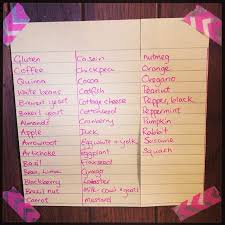 Gluten
Coffee
Quinoa
White beans
Brewer's yeast
Baker's yeast
Almonds
Apple
Arrowroot
Artichoke
Basil
Bean, Lima
Blackberry
Brazil nut
Carrot
Casein
Chickpea
Cocoa
Codfish
Cottage cheese
Cottonseed
Cranberry
Duck
Egg white + yolk
Eggplant
Flaxseed
Ginger
Lobster
Milk - cow's + goat's
Mustard
Nutmeg
Orange
Oregano
Peanut
Pepper, black
Peppermint
Pumpkin
Rabbit
Sesame
Squash